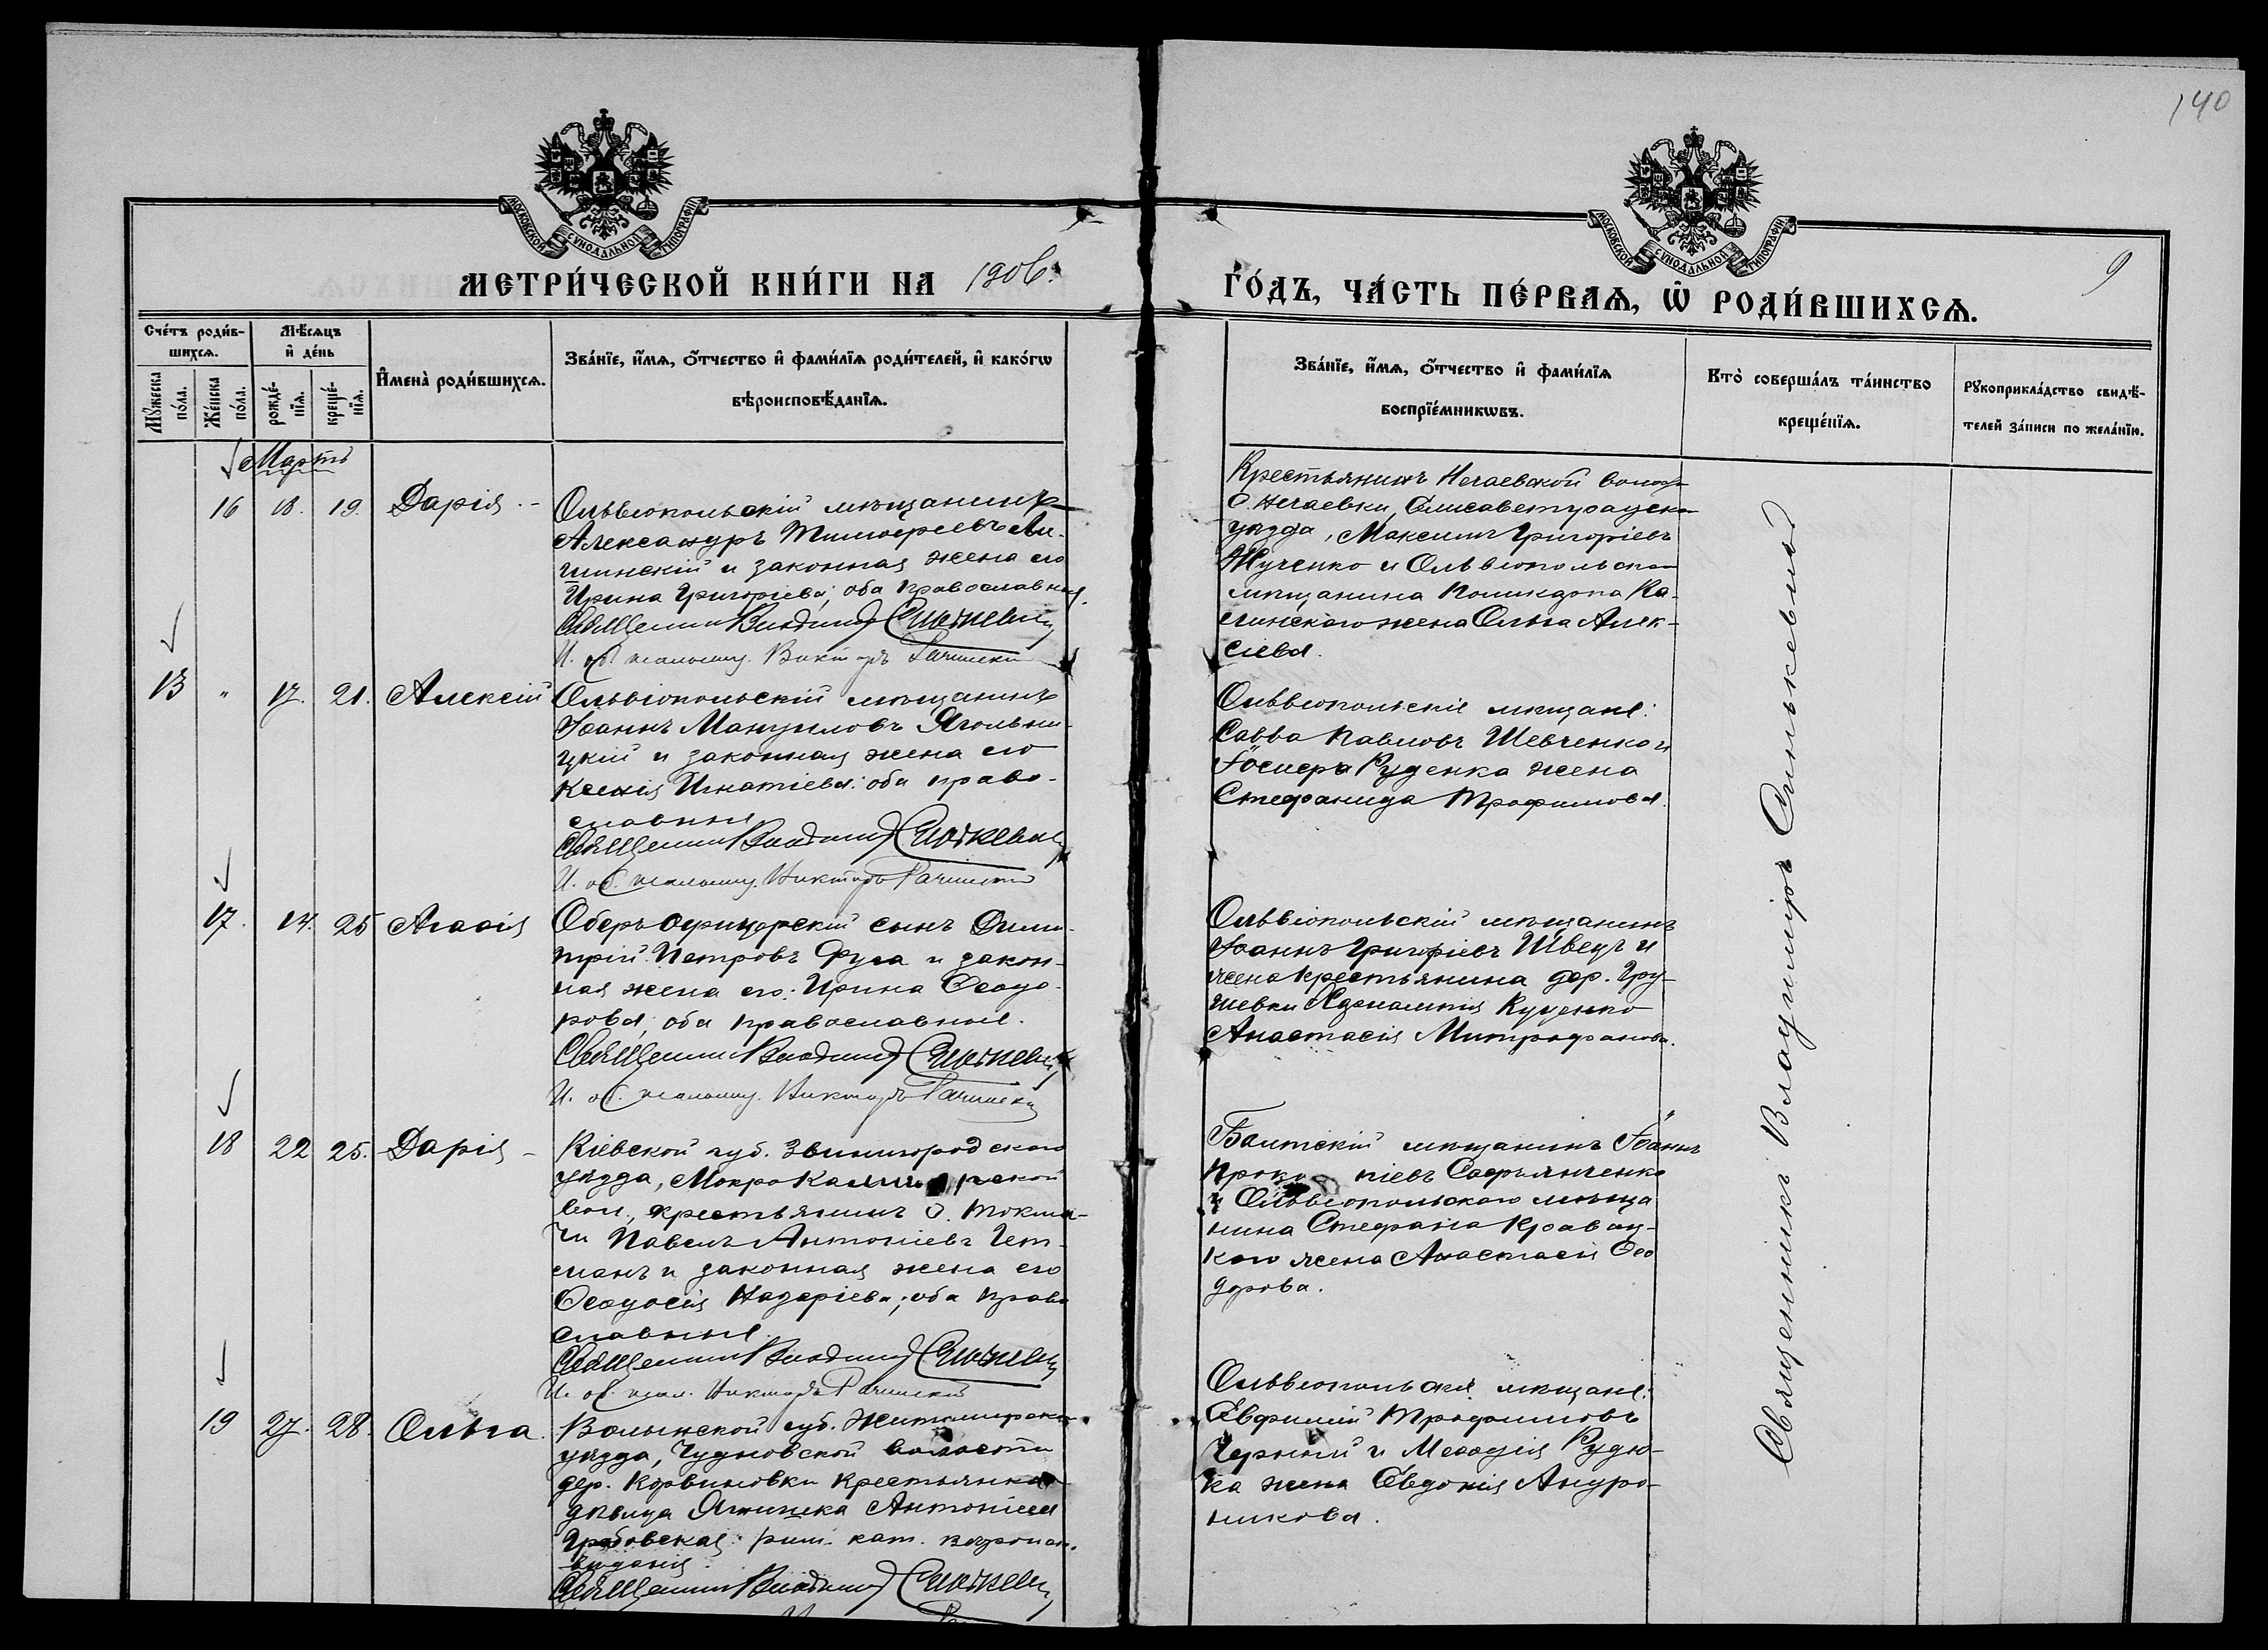 140
МОСКОВСКОЙ СУНОДАЛЬНОЙ ТИПОГРАФІИ
МОСКОВСКОЙ СУНОДАЛЬНОЙ ТИПОГРАФІИ
МЕТРИ́ЧЕСКОЙ КНИ́ГИ НА 1906.
ГО́ДЪ, ЧА́СТЬ ПЕ́РВАѦ, Ѡ РОДИ́ВШИХСѦ.
9
Сче́тъ роди́в-
шихсѧ.
Мꙋ́жеска по́ла.
Же́нска по́ла.
Мѣ́сѧцъ
и҆ де́нь
рожде́-
нїѧ.
креще́-
нїѧ.
И҆мена̀ роди́вшихсѧ.
Зва́нїе, и҆́мѧ, ѻ҆́тчество и҆ фами́лїѧ роди́телей, и҆ како́гѡ
вѣроисповѣ́данїѧ.
Зва́нїе, и҆́мѧ, ѻ҆́тчество и҆ фами́лїѧ
воспрїе́мникѡвъ.
Кто̀ соверша́лъ та́инство
креще́нїѧ.
Рꙋкоприкла́дство свидѣ́-
телей за́писи по жела́нїю.
Мартъ
16 18. 19. Дарія
Ольвіопольскій мѣщанинъ
Александръ Тимофеевъ Ли-
шинскій и законная жена его
Ирина Григоріева; оба православныя.
Священникъ Владиміръ Синькевичъ
И. об. псаломщ. Викторъ Рачинскій
Крестьянинъ Нечаевской волос
с. Нечаевки, Елисаветградска
уѣзда, Максимъ Григоріевъ
Жученко и Ольвіопольскаго
мѣщанина Ка-
жена Ольга Алек-
сіева.
13 " 17. 21. Алексій
Ольвіопольскій мѣщанинъ
Іоаннъ Мануиловъ Ягольни-
цкій и законная жена его
Ксенія Игнатіева: оба право-
славные
Священникъ Владиміръ Синькевичъ
И. об. псаломщ. Викторъ Рачинскій
Ольвіопольскіе мѣщане:
Савва Павловъ Шевченко и
Іосифа Руденка жена
Стефанида Трофимова.
17. 14. 25 Агафія
Оберъ офицерскій сынъ Дими-
трій Петровъ Фуга и закон-
ная жена его: Ирина Феодо-
рова; оба православные.
Священникъ Владиміръ Синькевичъ
И. об. псаломщ. Викторъ Рачинскій
Ольвіопольскій мѣщанинъ
Іоаннъ Григоріевъ Швецъ и
жена крестьянина дер. Гру-
шевки Куценко
Анастасія Митрофанова.
18 22 25. Дарія
Кіевской губ. Звенигородского
уѣзда, Мокро Калигорской
вол., крестьянинъ с. Токма-
чи Павелъ Антоніевъ Гет-
манъ и законная жена его
Феодосія Назаріева; оба право
славные.
Священникъ Владиміръ Синькевичъ
И. об. псал. Викторъ Рачинскій
Балтскій мѣщанинъ Іоаннъ
Прокопіевъ Софьянченко
и Ольвіопольскаго мѣща
нина Стефана Кравец-
каго жена Анастасія Фео
дорова.
19 27. 28. Ольга.
Волынской губ. Житомирска
уѣзда, Чудновской волости
дер. Корвиновки крестьянка
дѣвица Антоніева
Грабовская: рим. кат. вѣроиспо-
вѣданія.
Священникъ Владиміръ Синькевичъ
Ольвіопольскіе мѣщане:
Евфимій Трофимовъ
Черный и Мефодія Рудю-
ка жена Евдокія Андро-
никова.
Священникъ Владиміръ Синькевичъ